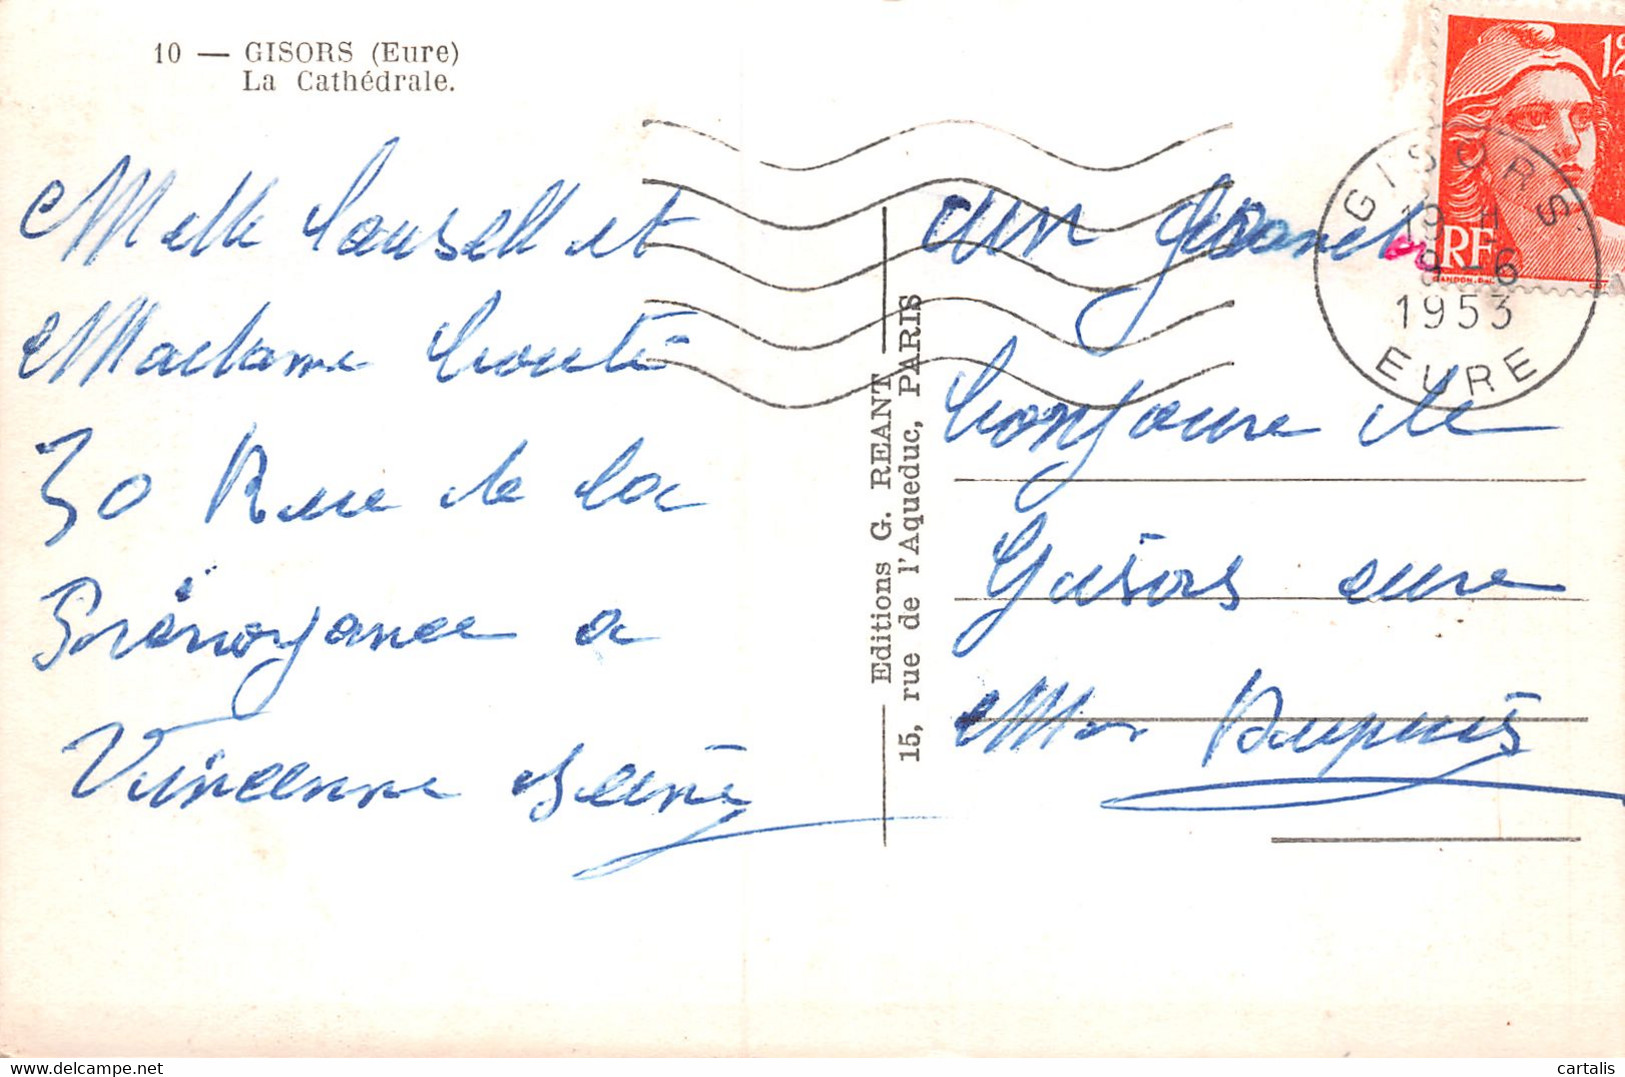 10 — GISORS (Eure)
La Cathédrale.
Melle et
Madame
30 Rue de la
Prévoyance a
Vincenne Seine
Editions G. REANT
15, rue de l'Aqueduc, PARIS
un grand
bonjoure de
Gisors eure
Dupuis
12
RF
GANDON
GISORS
19
9 - 6
1953
EURE
www.delcampe.net
cartalis